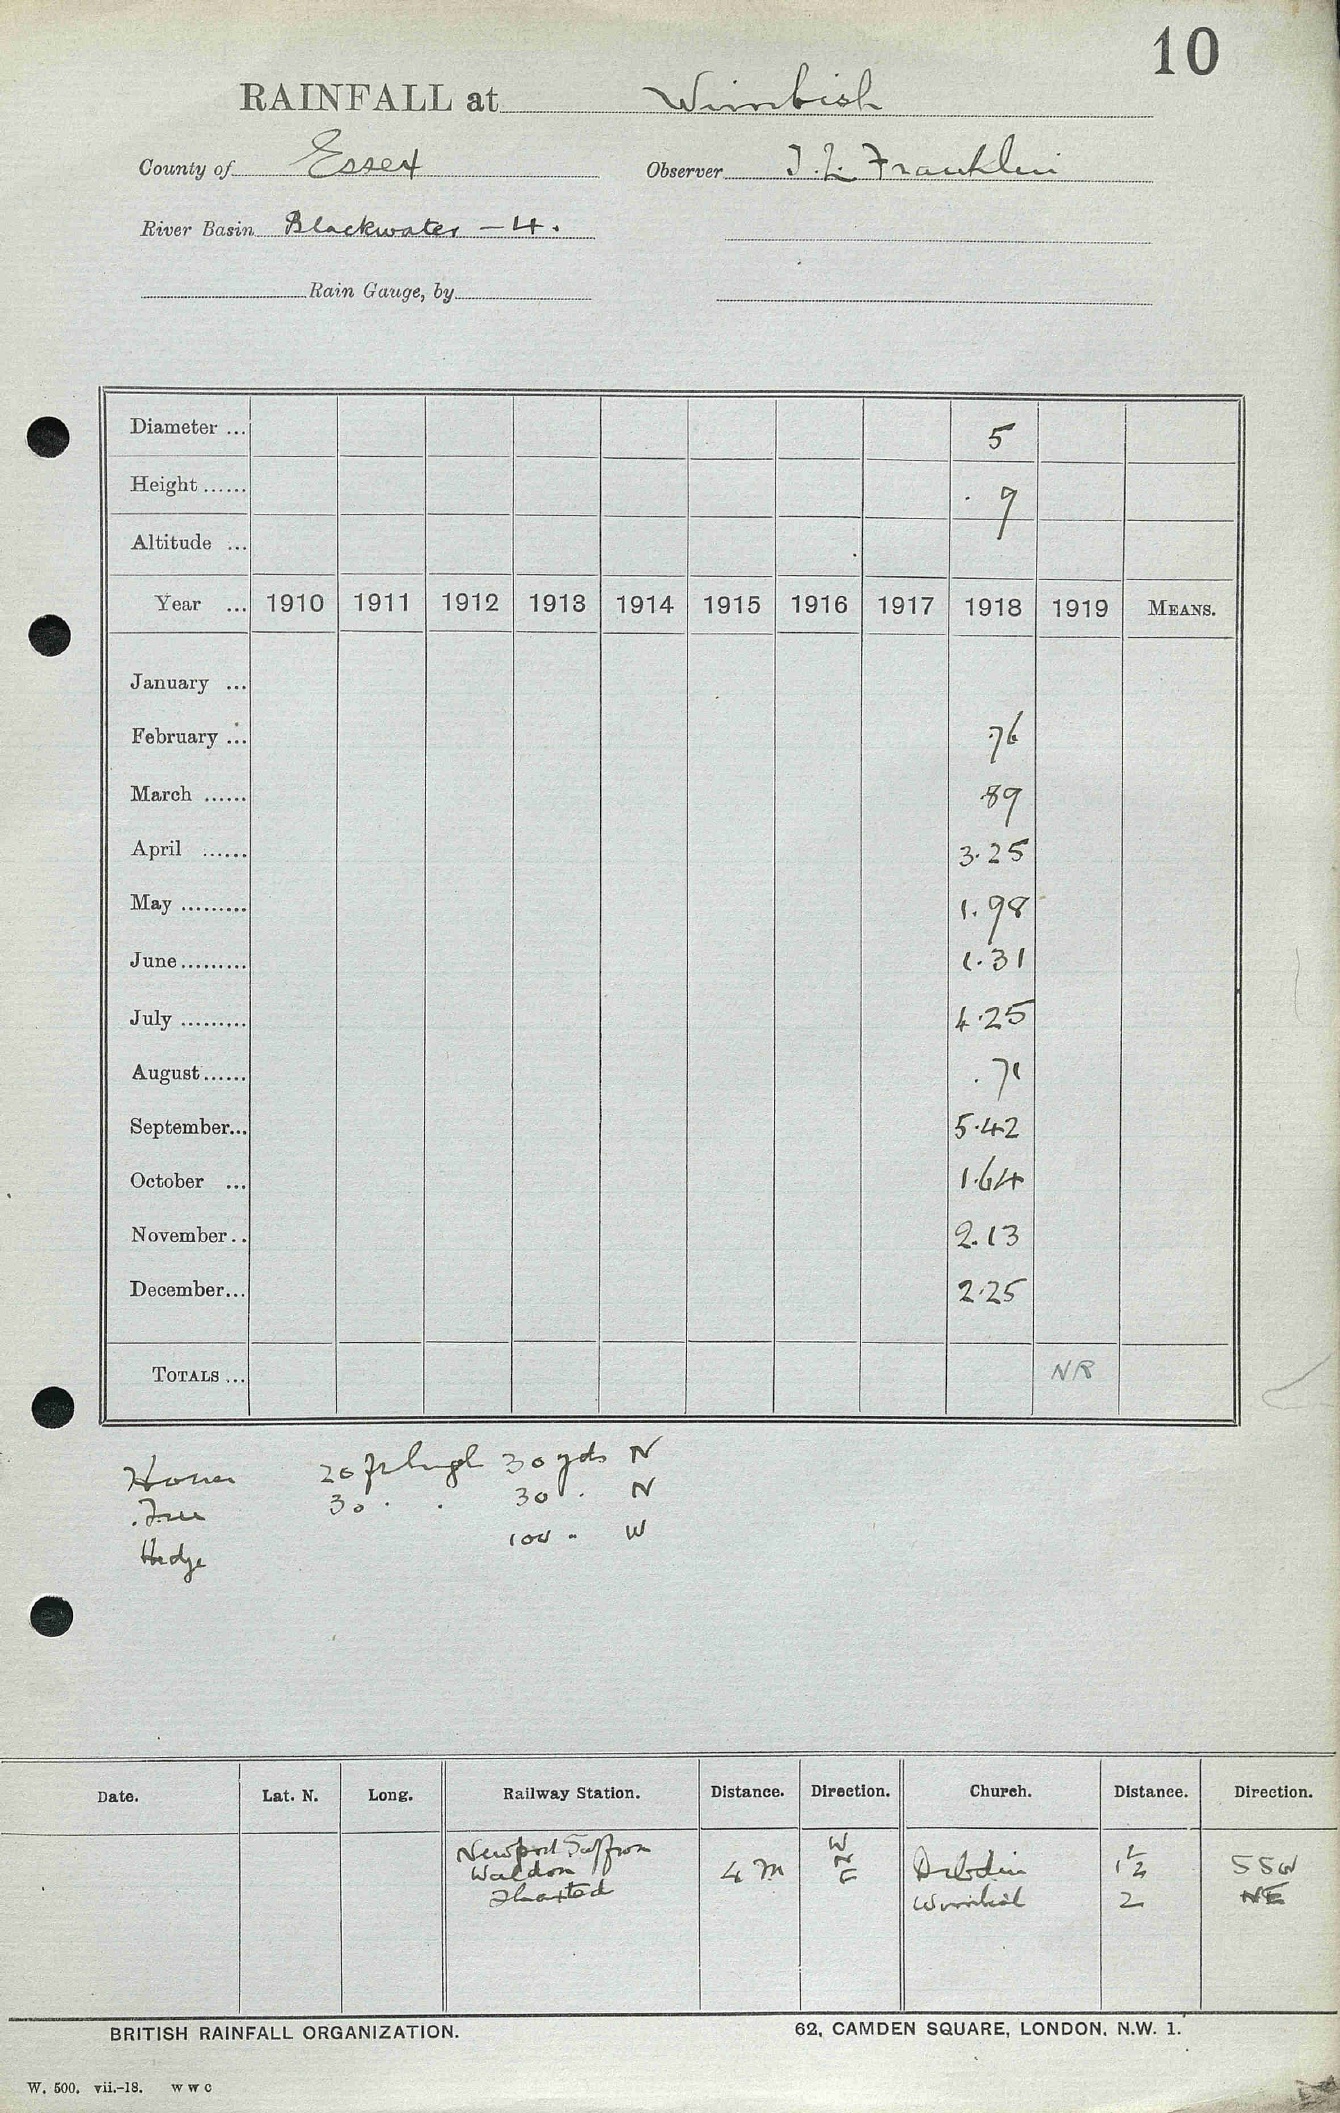 10
RAINFALL at Wimbish
County of Essex Observer J. L. Franklin
River Basin Blackwater - 4.
Rain Gauge, by
Diameter ... 5
Height ...... . 9
Altitude ...
Year ... 1910 1911 1912 1913 1914 1915 1916 1917 1918 1919 MEANS.
January ...
February ... .76
March ...... .89
April ...... 3.25
May ......... 1.98
June ......... 1.31
July ......... 4.25
August ...... .71
September... 5.42
October ... 1.64
November.. 2.13
December... 2.25
TOTALS ... NR
House 20 ft high 30 yds N
Tree 30 . . 30 . N
Hedge 100 " W
Date. Lat. N. Long. Railway Station. Distance. Direction. Church. Distance. Direction.
Newport Saffron W
Waldon 4 m N Debdin 1½ SSW
Thaxted E Wimbish 2 NE
BRITISH RAINFALL ORGANIZATION. 62, CAMDEN SQUARE, LONDON, N.W. 1.
W. 500. vii.-18. W W C